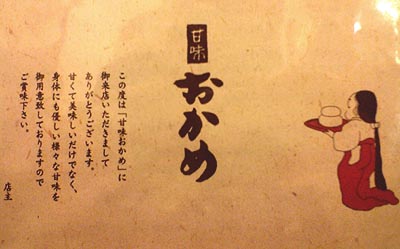 甘味
おかめ
この度は「甘味おかめ」に
御来店いただきまして
ありがとうございます。
甘くて美味しいだけでなく、
身体にも優しい様々な甘味を
御用意致しておりますので
ご賞味下さい。
店主